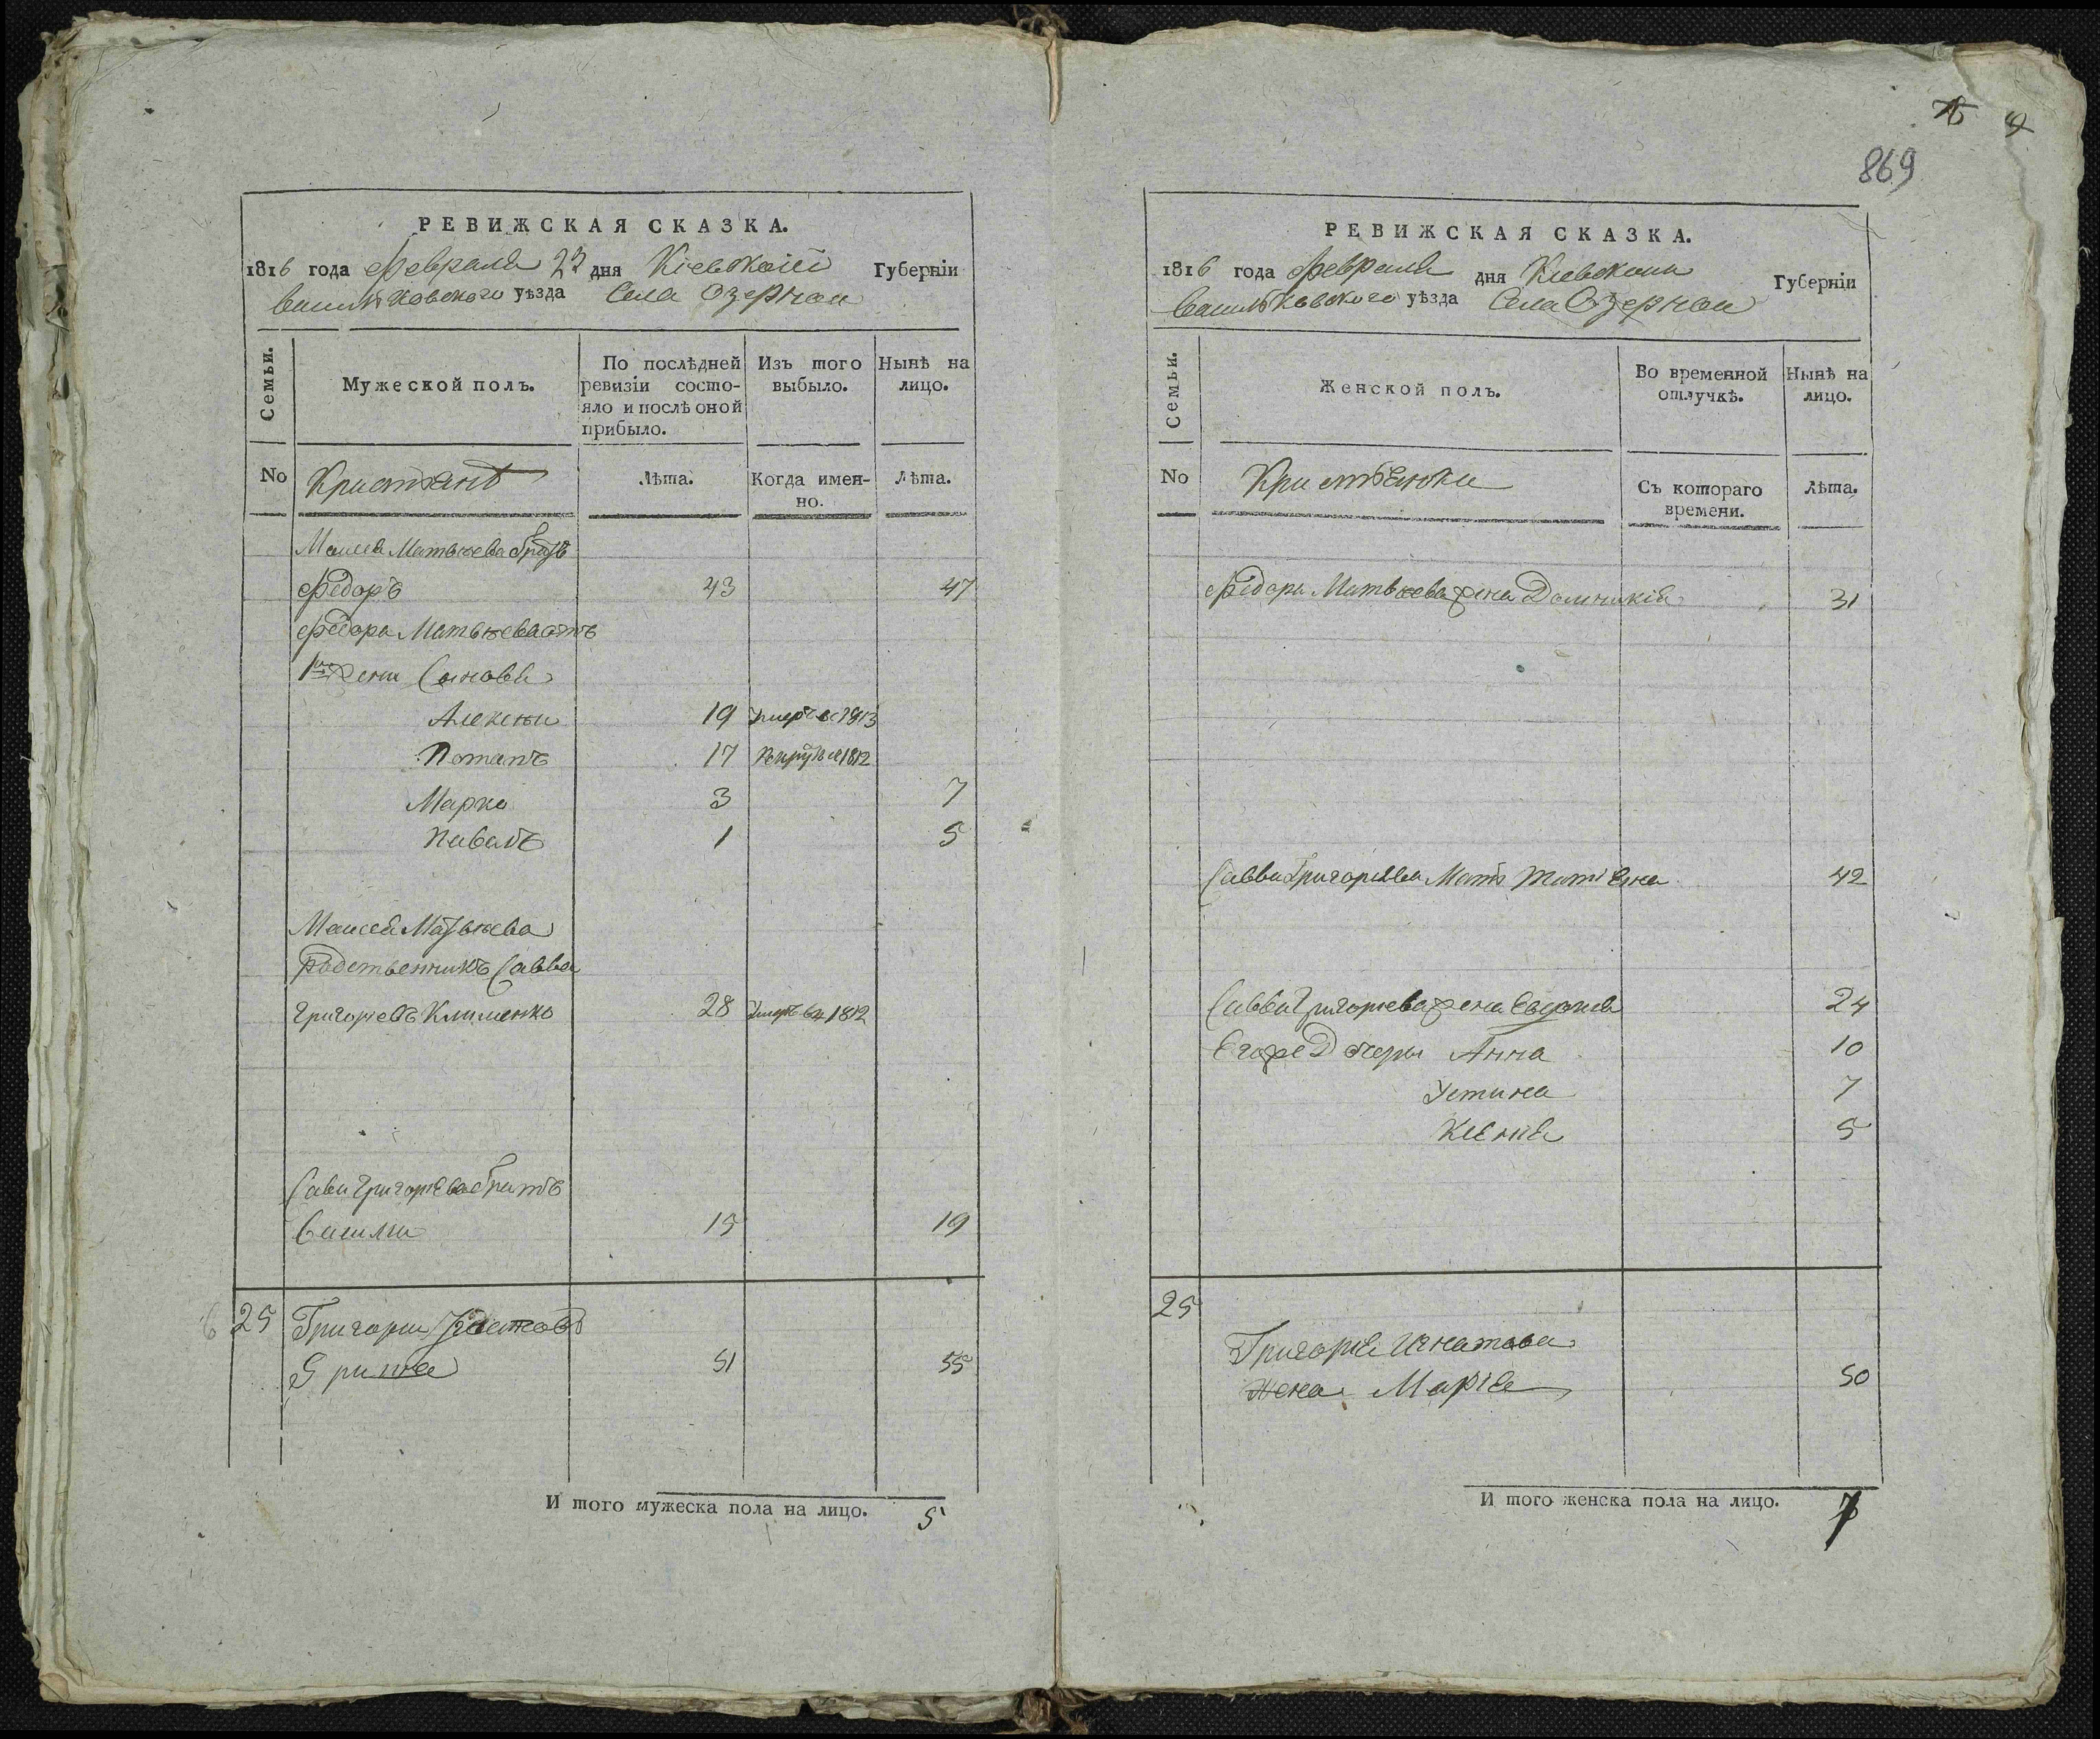 РЕВИЖСКАЯ СКАЗКА.
1816 года февраля 23 дня Кіевской Губерніи
Васильковского уѣзда Села Озерной
Семьи.
Мужеской полъ.
По послѣдней ревизіи состояло и послѣ оной прибыло.
Изъ того выбыло.
Нынѣ на лицо.
No
Лѣта.
Когда именно.
Лѣта.
Моисея Матвѣева братъ
Федоръ 43 47
Федора Матвѣева отъ
1й жены Сыновья
Алексѣи 19 умеръ в 1813
Потапъ 17 1812
Марко 3 7
Павелъ 1 5
Моисея Матвѣева
родственникъ Савва
Григорьевъ Клименко 28 умеръ 1812
Сави Григорьева братъ
Василии 15 19
25 Григории Игнатовъ
51 55
И того мужеска пола на лицо. 5
869
РЕВИЖСКАЯ СКАЗКА.
1816 года февраля дня Кіевской Губерніи
Васильковского уѣзда Села Озерной
Семьи.
Женской полъ.
Во временной отлучкѣ.
Нынѣ на лицо.
No
Съ котораго времени.
Лѣта.
Федора Матвѣева жена Домникія 31
Саввы Григорьева Мать Татіяна 42
Саввы Григорьева жена 24
Егоже Дочеры Анна 10
Устина 7
Ксенія 5
25
Григорія Игнатова
жена Марія 50
И того женска пола на лицо. 7